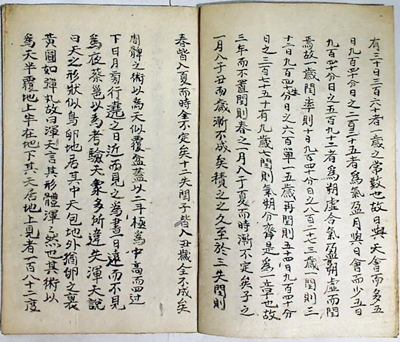 有三十日三百六十者一歲之常數也故日與天會而多五
日九百四十分日之二百三十五者爲氣盈月與日會而少五日
九百四十分日之五百九十二者爲朔虛合氣盈朔虛而閏生
焉故一歲閏率則十日九百四十分日之八百二十七三歲一閏則三
十二日九百四十分日之六百單一五歲再閏則五十四日九百四十分
日之三百七十五十有九歲七閏則氣朔分齊是爲一章也故
三年而不置閏則春之一月入于夏而時漸不定矣子之
一月入于丑而歲漸不成矣積之之久至於三失閏則
春皆入夏而時全不定矣十二失閏子皆入丑歲全不成矣
周髀之術以爲天似覆盆蓋以斗極爲中中高而四邊
下日月旁行遶之日近而見之爲晝日遠而不見
爲夜蔡邕以爲考驗天象多所違失渾天說
曰天之形狀似鳥卵地居其中天包地外猶卵之裏
黃圓如彈丸故曰渾天言其形體渾渾然也其術以
爲天半覆地上半在地下其天居地上見者一百八十二度